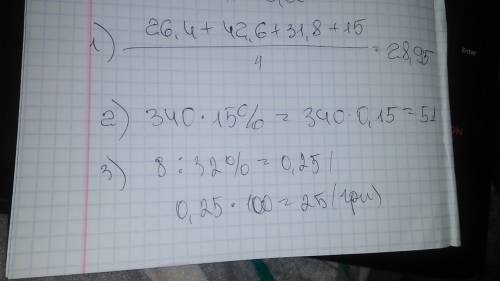 1) 26,4 + 42,6 + 31,8 + 15
4
= 28,95
2) 340 · 15% = 340 · 0,15 = 51
3) 8 : 32% = 0,25
0,25 · 100 = 25 (грн)
Enter